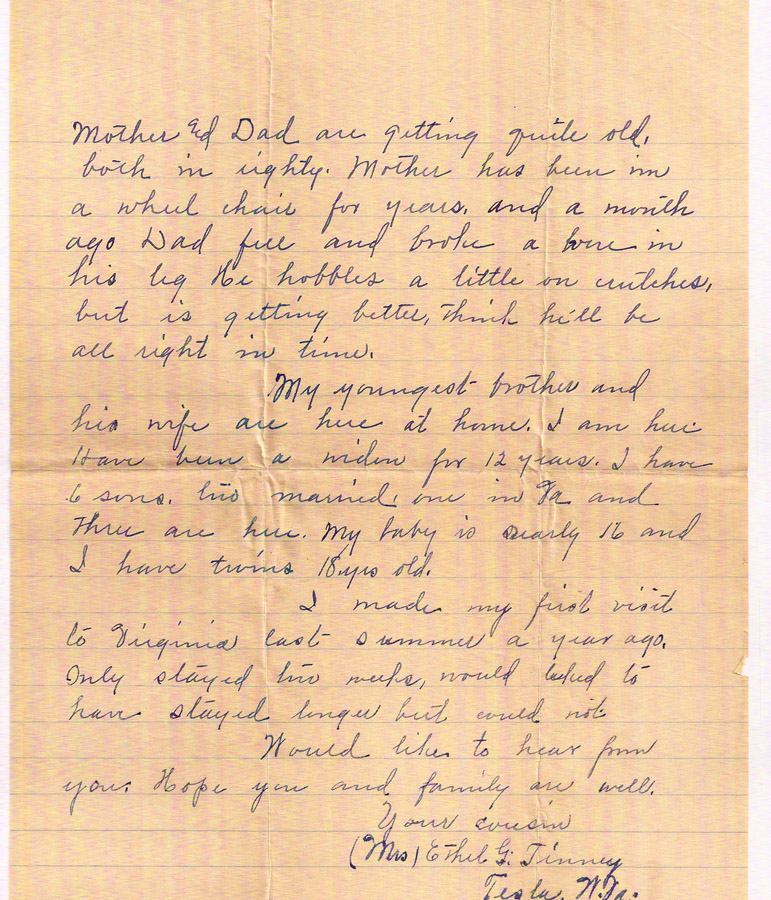 Mother & Dad are getting quite old,
both in eighty. Mother has been in
a wheel chair for years. and a month
ago Dad fell and broke a bone in
his leg He hobbles a little on crutches,
but is getting better, think he'll be
all right in time.
My youngest brother and
his wife are here at home. I am here
Have been a widow for 12 years. I have
6 sons. two married, one in Va and
three are here. My baby is nearly 16 and
I have twins 18 yrs old.
I made my first visit
to Virginia last summer a year ago.
Only stayed two weeks, would liked to
have stayed longer but could not
Would like to hear from
you. Hope you and family are well.
Your cousin
(Mrs) Ethel G. Tinney
Tesla, W.Va.